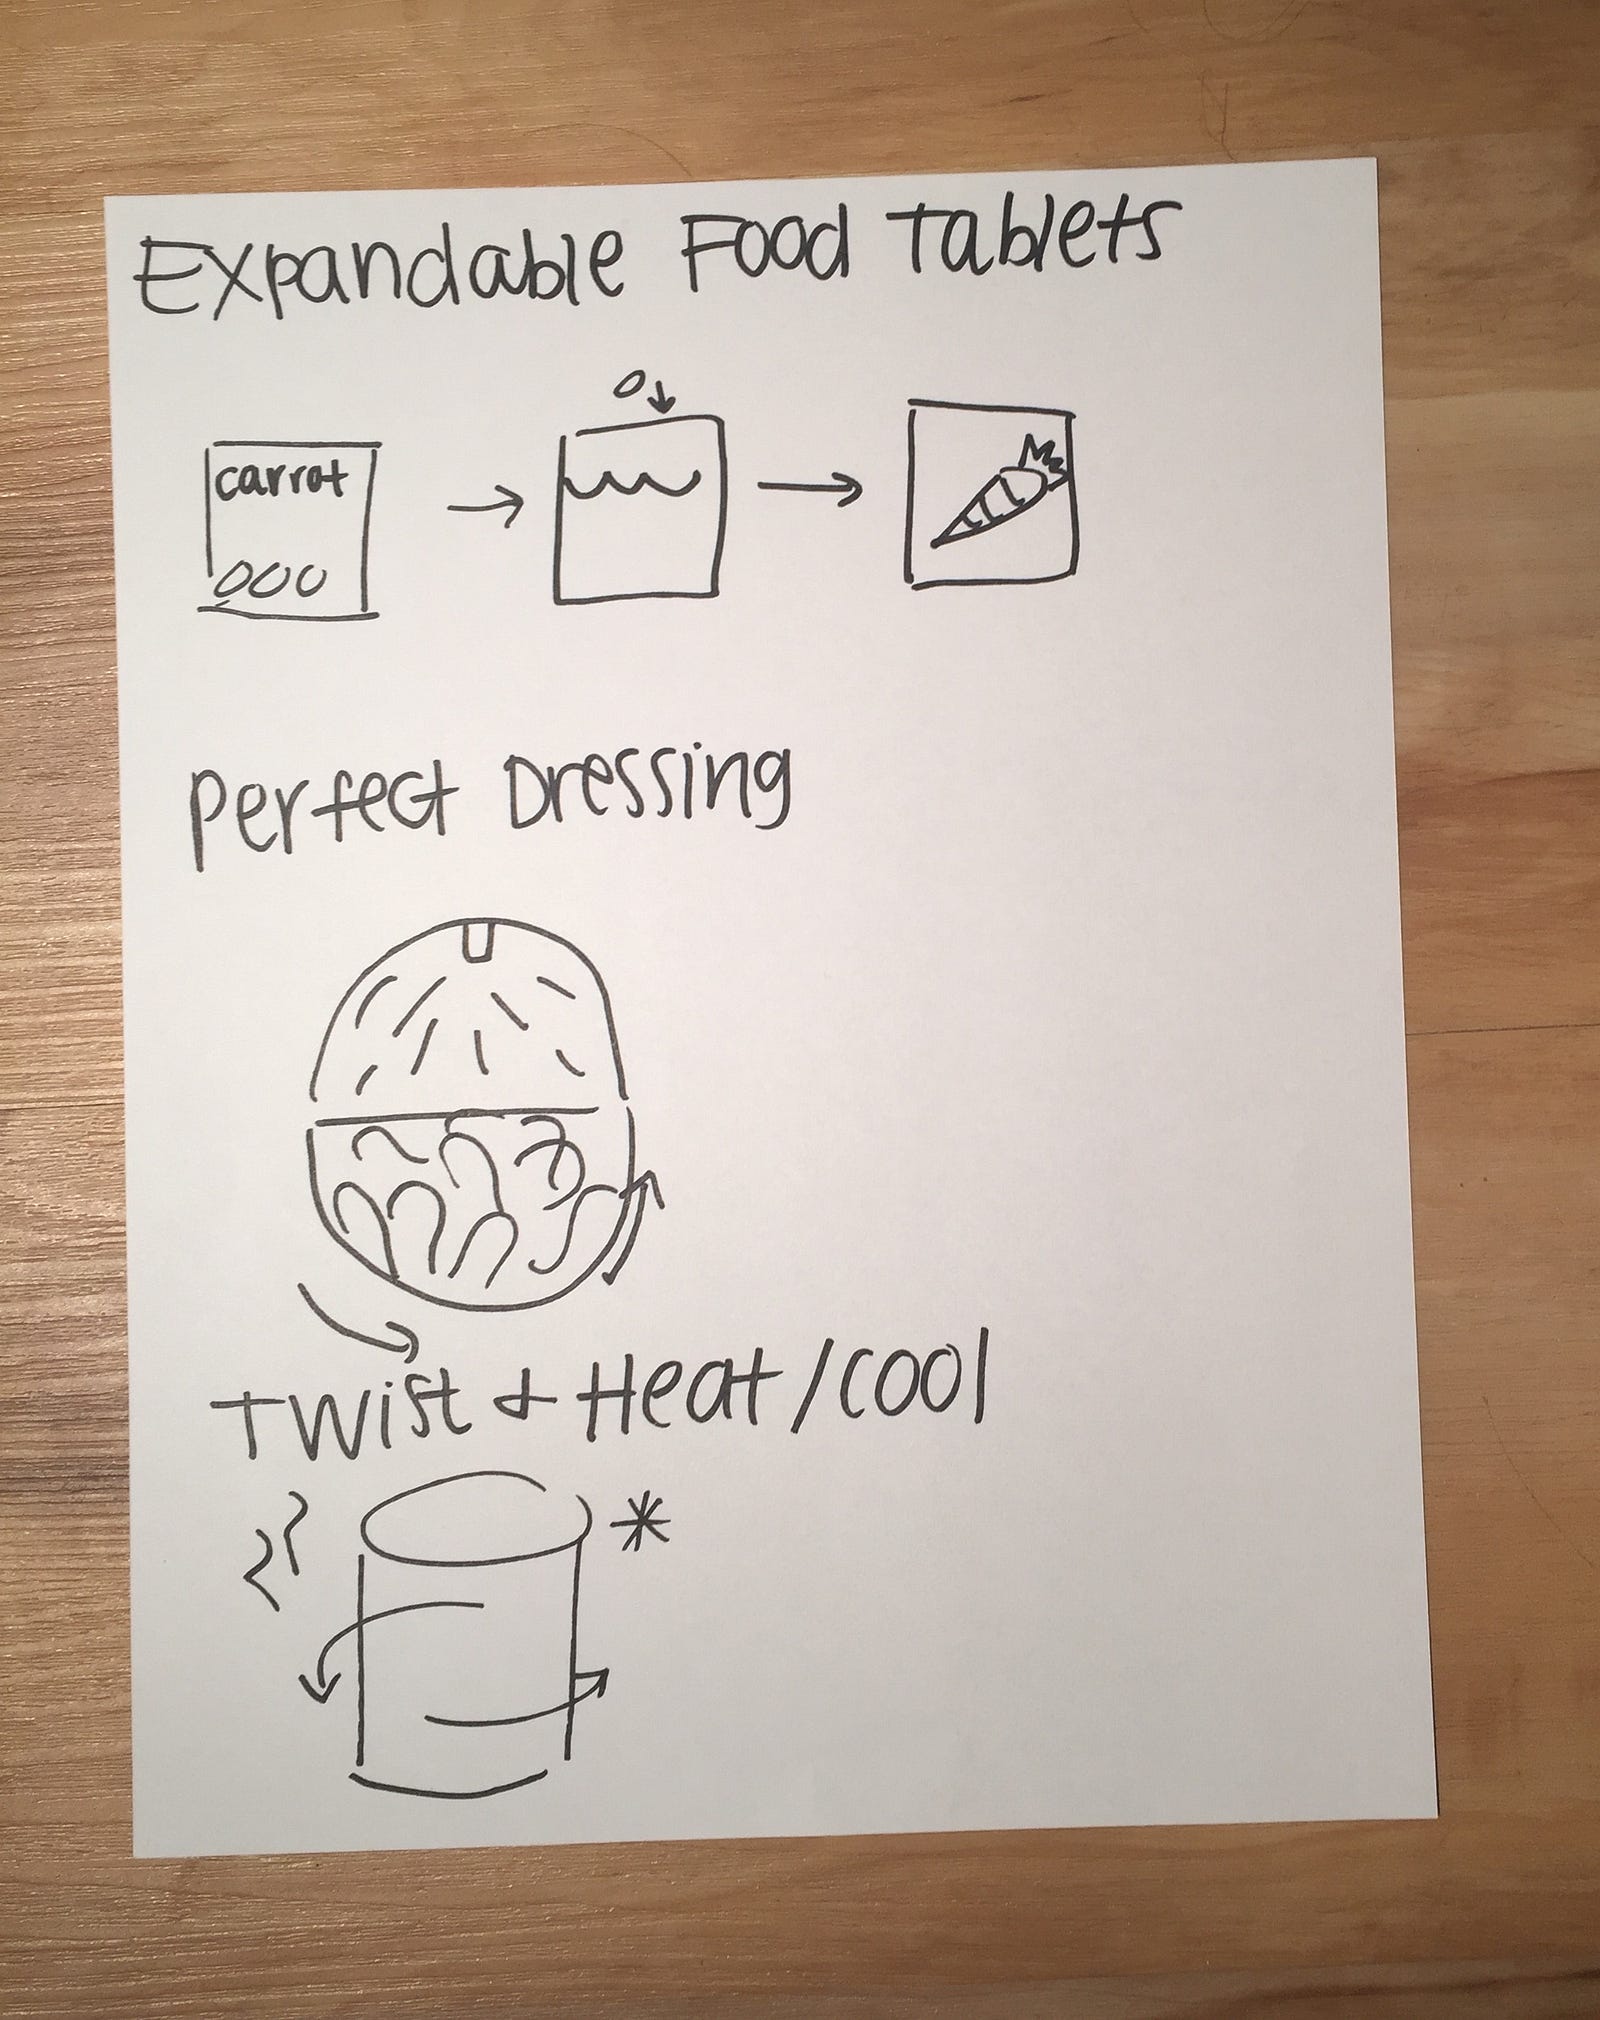 Expandable Food Tablets
carrot
Perfect Dressing
Twist & Heat/Cool